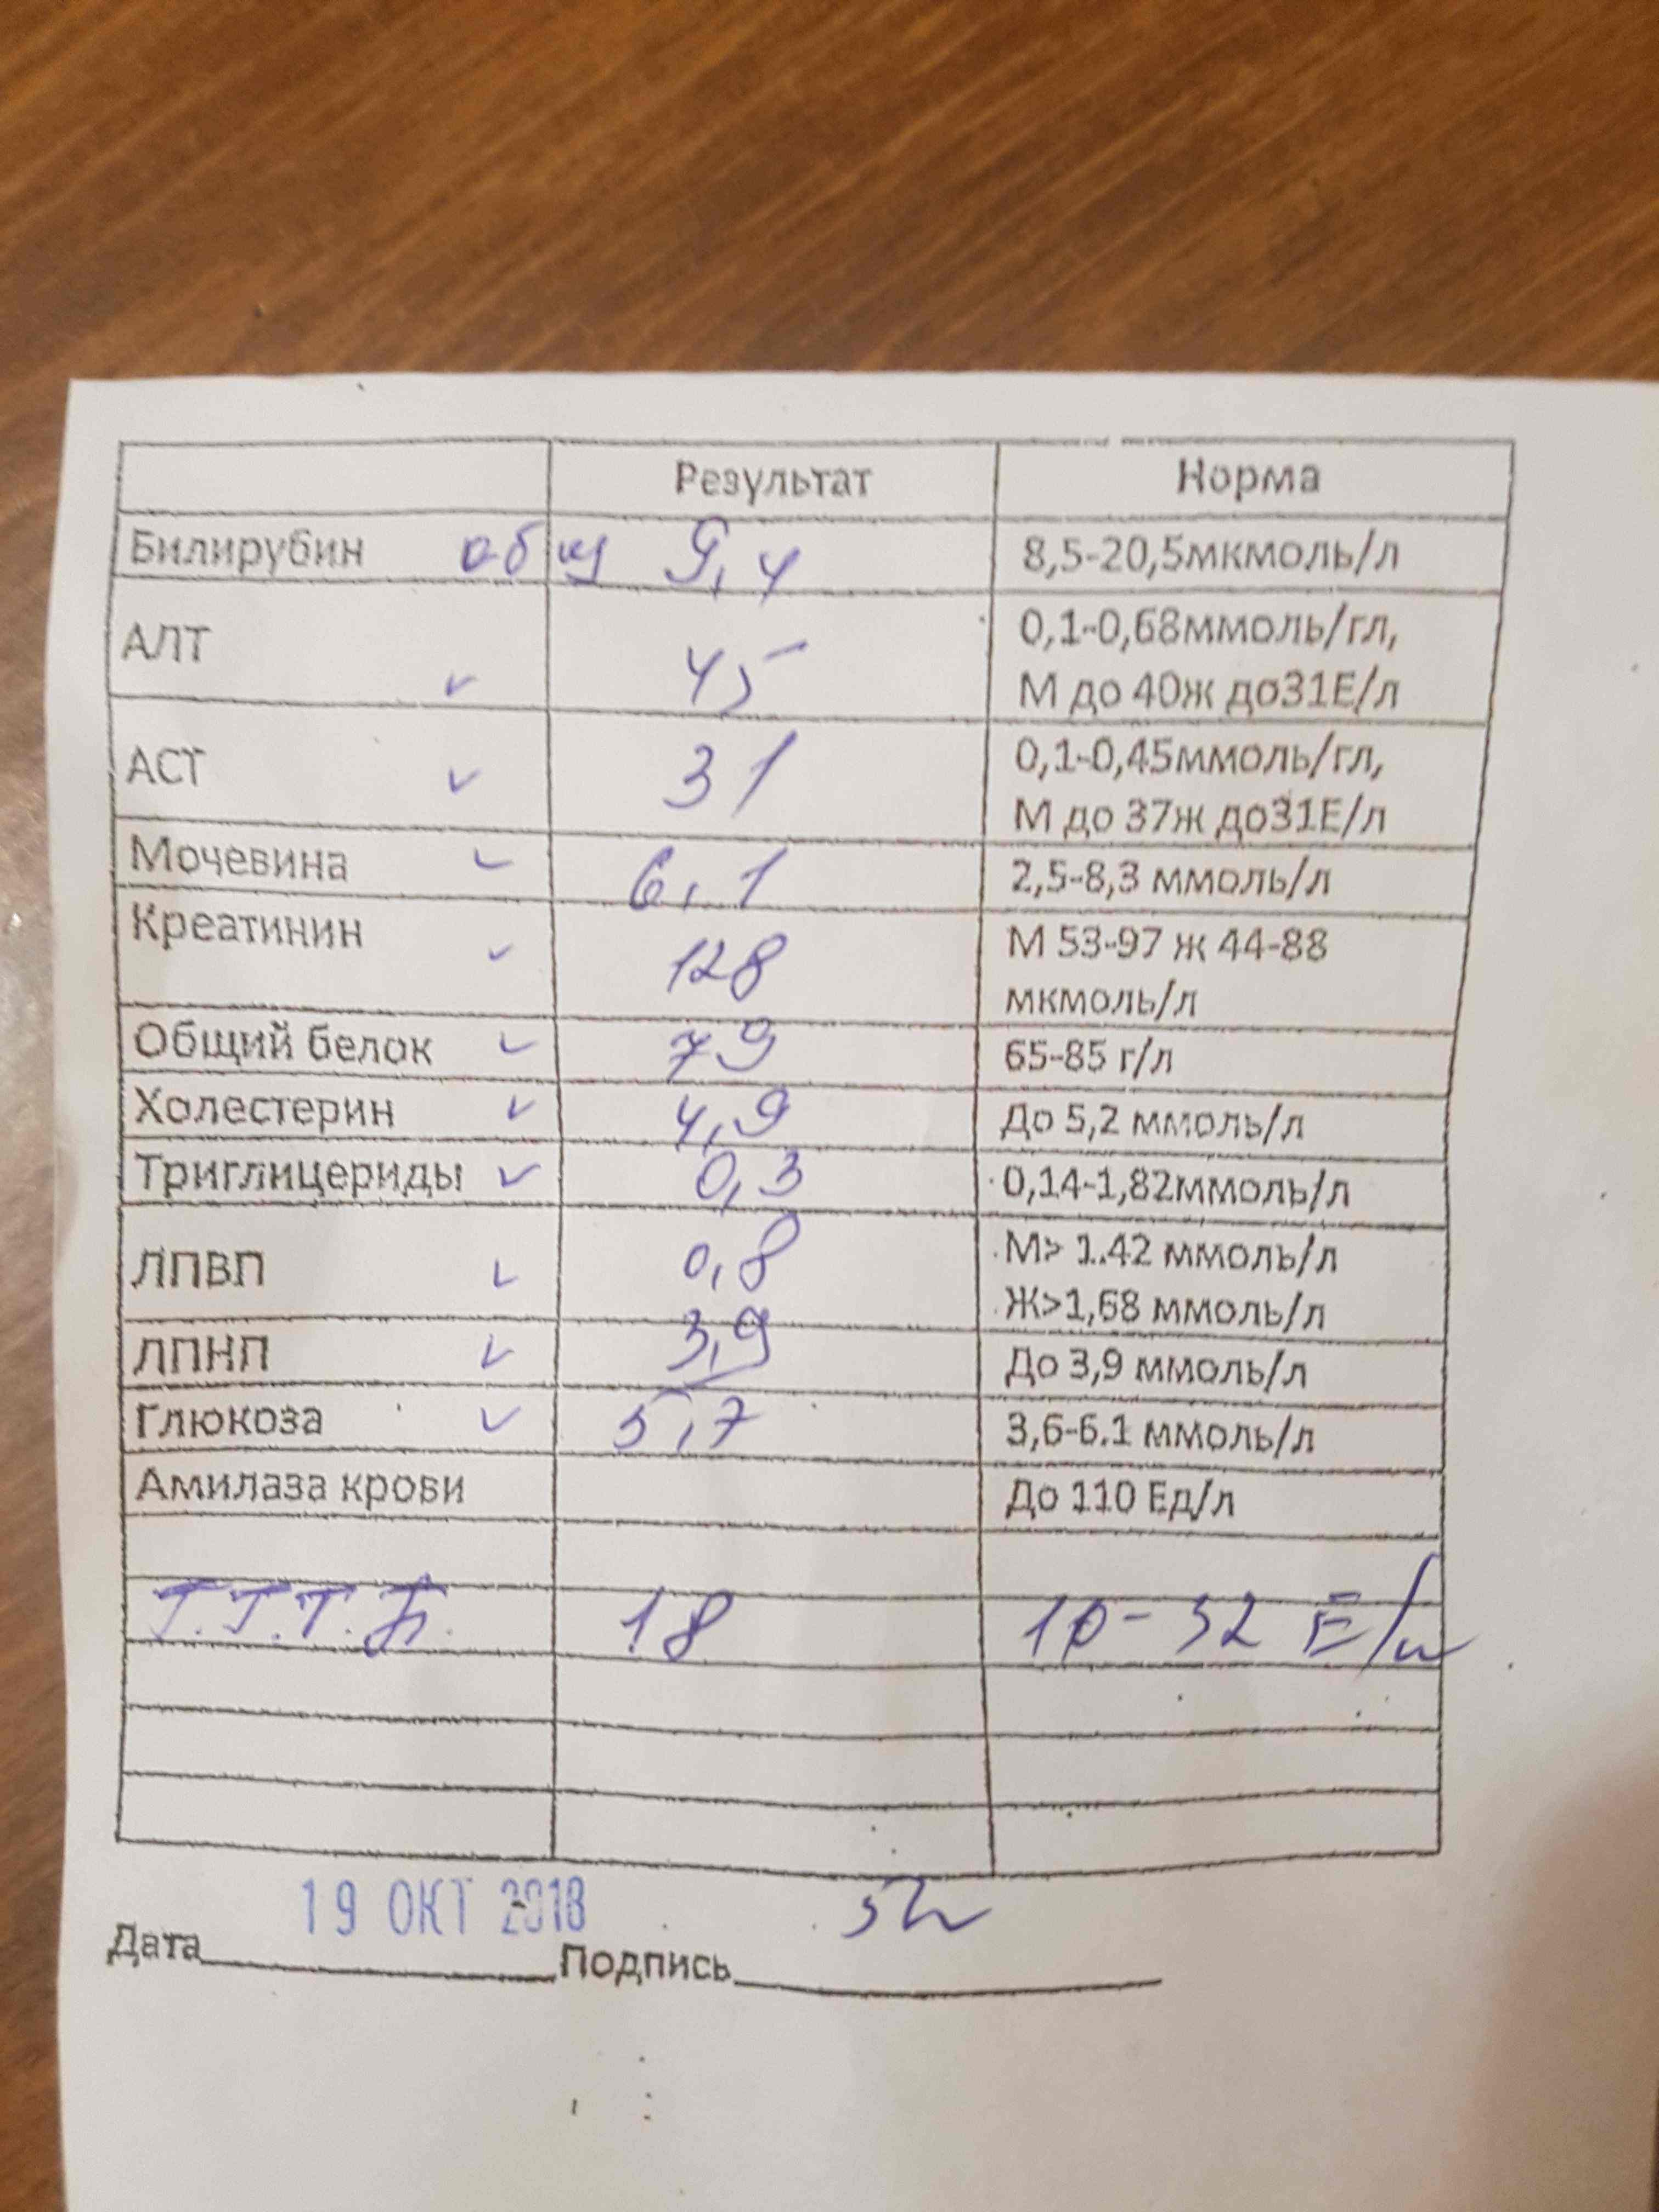 Результат Норма
Билирубин общ 9,4 8,5-20,5мкмоль/л
АЛТ 45 0,1-0,68ммоль/гл,
М до 40ж до31Е/л
АСТ 31 0,1-0,45ммоль/гл,
М до 37ж до31Е/л
Мочевина 6,1 2,5-8,3 ммоль/л
Креатинин 128 М 53-97 ж 44-88
мкмоль/л
Общий белок 79 65-85 г/л
Холестерин 4,9 До 5,2 ммоль/л
Триглицериды 0,3 0,14-1,82ммоль/л
ЛПВП 0,8 М> 1.42 ммоль/л
Ж>1,68 ммоль/л
ЛПНП 3,9 До 3,9 ммоль/л
Глюкоза 5,7 3,6-6.1 ммоль/л
Амилаза крови До 110 Ед/л
Г.Г.Т.П. 18 10-32 Е/л
19 ОКТ 2018
Дата Подпись